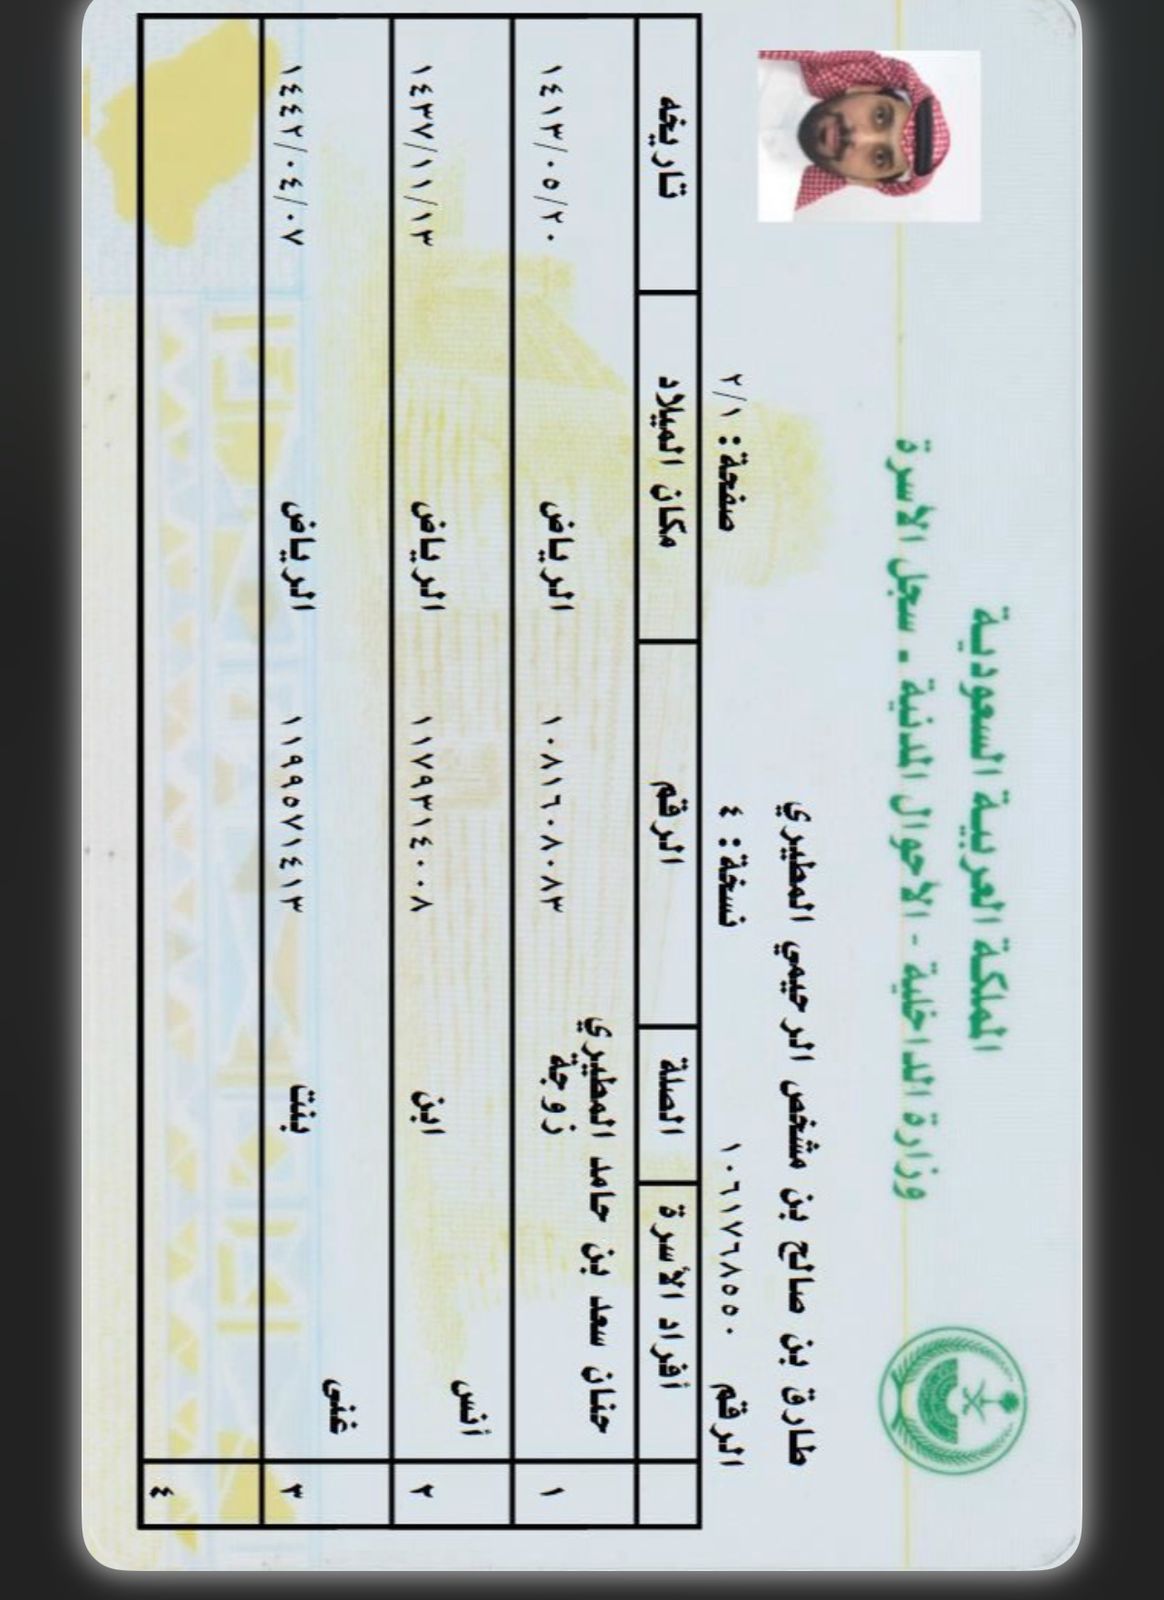 المملكة العربية السعودية
وزارة الداخلية - الأحوال المدنية - سجل الأسرة
طارق بن صالح بن مشخص الرحيمي المطيري
الرقم ١٠٦١٧٦٨٥٥٠ نسخة: ٤ صفحة: ٢/١
أفراد الأسرة الصلة الرقم مكان الميلاد تاريخه
١ حنان سعد بن حامد المطيري
زوجة ١٠٨١٦٠٨٠٨٣ الرياض ١٤١٣/٠٥/٢٠
٢ أنس
ابن ١١٧٩٣١٤٠٠٨ الرياض ١٤٣٧/١١/١٣
٣ غنى
بنت ١١٩٩٥٧١٤١٣ الرياض ١٤٤٢/٠٤/٠٧
٤